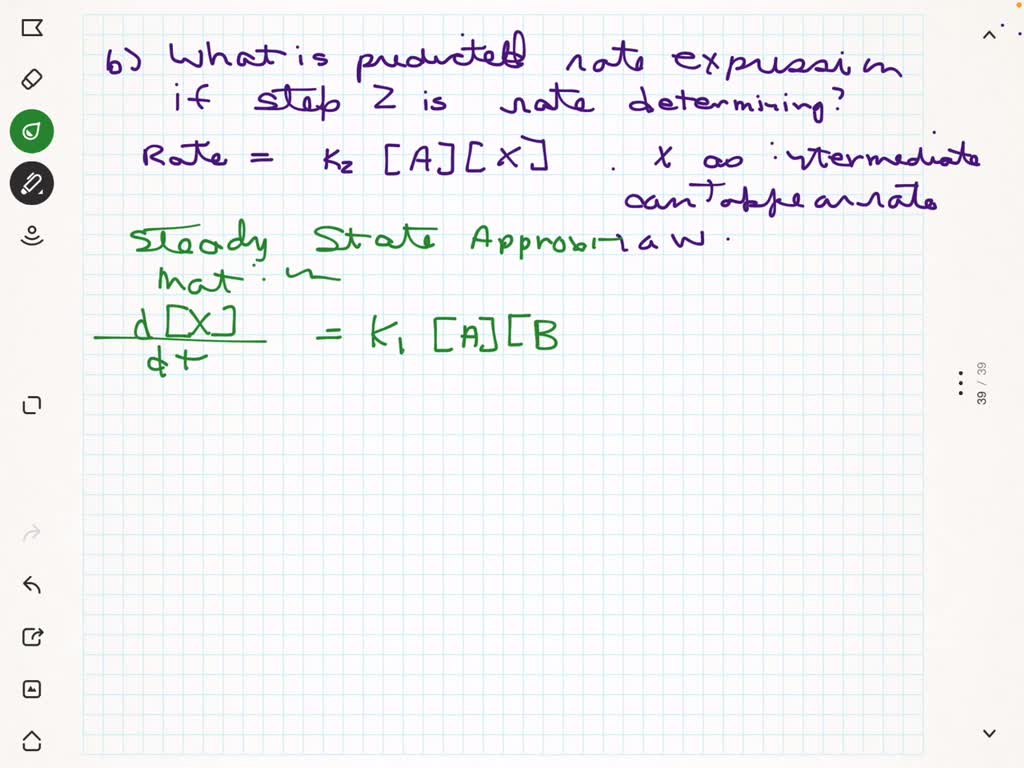 b) What is predicted rate expression
if step 2 is rate determining?
Rate = K2 [A][X] . X as intermediate
can't appear rate
law.
Steady State Approxi-
mation
d[X]
dt
= K1 [A][B
39 / 39